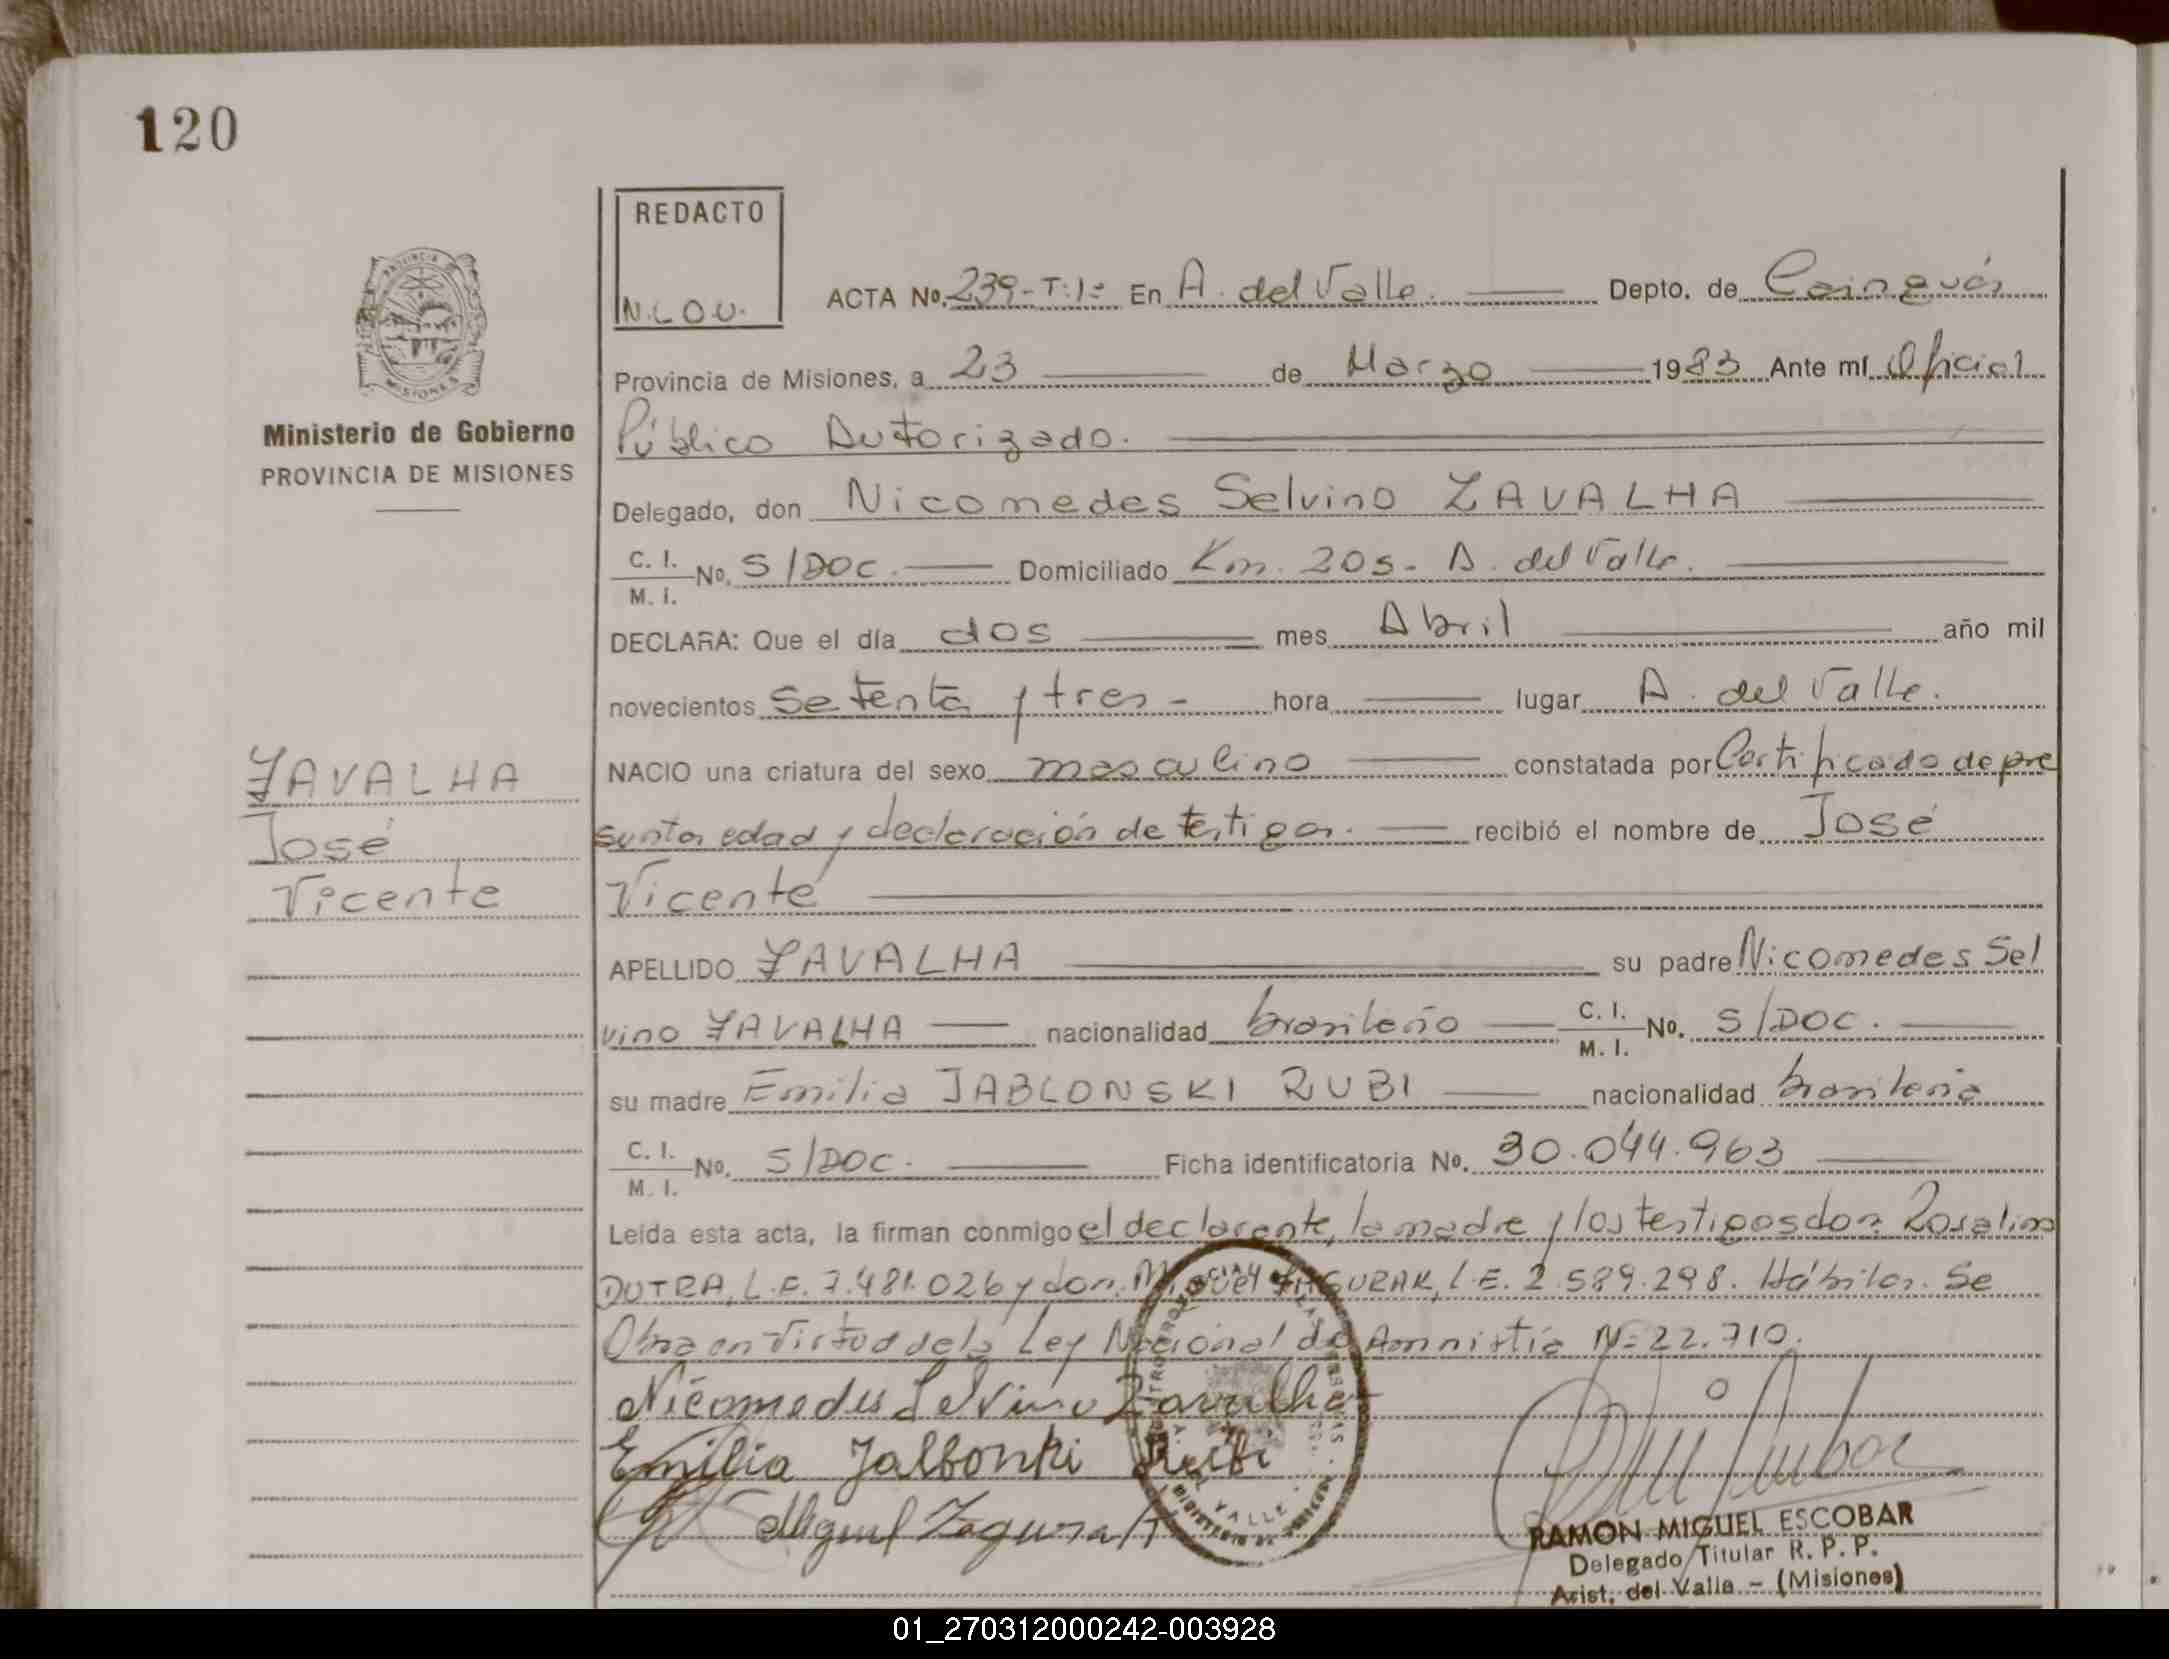 120
REDACTO
N.L.O.U.
PROVINCIA DE
MISIONES
Ministerio de Gobierno
PROVINCIA DE MISIONES
ACTA No. 239-T:1= En A. del Valle. Depto. de Cainguás
Provincia de Misiones, a 23 de Marzo 1983 Ante mí Oficial
Público Autorizado.
Delegado, don Nicomedes Selvino ZAVALHA
C. I.
M. I. No. S/DOC. Domiciliado Km. 205- A. del Valle.
DECLARA: Que el día dos mes Abril año mil
novecientos setenta y tres - hora lugar A. del Valle.
ZAVALHA
José
Vicente
NACIO una criatura del sexo masculino constatada por Certificado de pre
sunta edad y declaración de testigos. recibió el nombre de José
Vicente
APELLIDO ZAVALHA su padre Nicomedes Sel
vino ZAVALHA nacionalidad brasileño C. I.
M. I. No. S/DOC.
su madre Emilia JABLONSKI RUBI nacionalidad brasileña
C. I.
M. I. No. S/DOC. Ficha identificatoria No. 30.044.963
Leída esta acta, la firman conmigo el declarante, la madre y los testigos don Rosalino
DUTRA, L.E. 7.481.026 y don Miguel ZAGURAK, L.E. 2.589.298. Hábiles. Se
Obra en virtud de la Ley Nacional de Amnistía N= 22.710.
Nicomedes Selvino Zavalha
Emilia Jalbonki Rubi
Miguel Zagurak
RAMON MIGUEL ESCOBAR
Delegado Titular R. P. P.
Arist. del Valle - (Misiones)
01_270312000242-003928